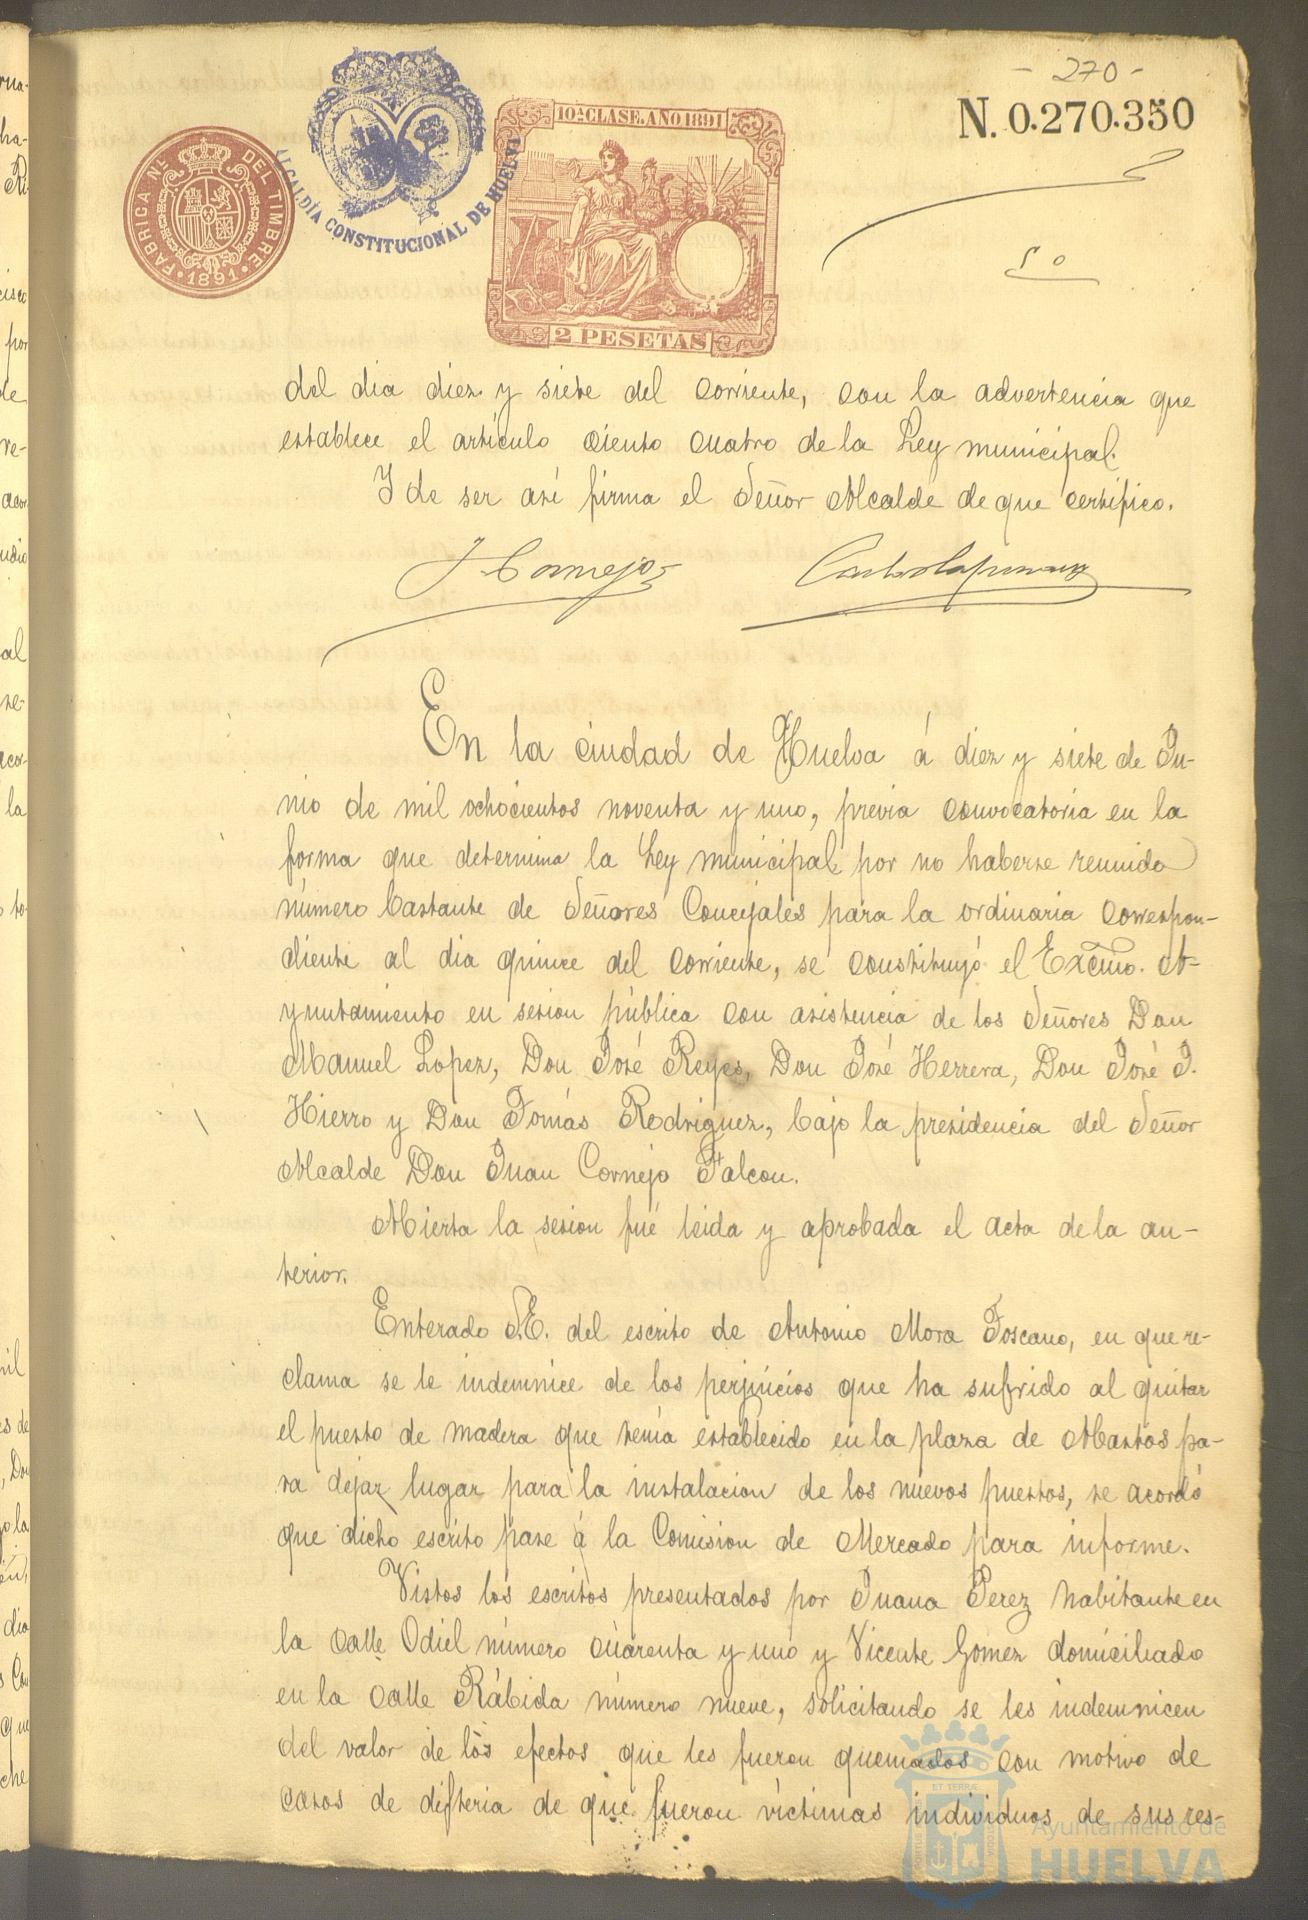 - 270 -
N. 0.270.350
FABRICA Nᴸ DEL TIMBRE
· 1891 ·
ALCALDÍA CONSTITUCIONAL DE HUELVA
10ª CLASE. AÑO 1891
2 PESETAS
del dia diez y siete del corriente, con la advertencia que
establece el artículo ciento cuatro de la Ley municipal.
Y de ser así firma el Señor Alcalde de que certifico.
J. Cornejo
En la ciudad de Huelva á diez y siete de Ju-
nio de mil ochocientos noventa y uno, previa convocatoria en la
forma que determina la Ley municipal por no haberse reunido
número bastante de Señores Concejales para la ordinaria correspon-
diente al dia quince del corriente, se constituyó el Excmo. A-
yuntamiento en sesion pública con asistencia de los Señores Don
Manuel Lopez, Don José Reyes, Don José Herrera, Don José J.
Hierro y Don Tomás Rodriguez, bajo la presidencia del Señor
Alcalde Don Juan Cornejo Falcon.
Abierta la sesion fué leida y aprobada el acta de la an-
terior.
Enterado S.E. del escrito de Antonio Mora Toscano, en que re-
clama se le indemnice de los perjuicios que ha sufrido al quitar
el puesto de madera que tenía establecido en la plaza de Abastos pa-
ra dejar lugar para la instalacion de los nuevos puestos, se acordó
que dicho escrito pase á la Comision de Mercado para informe.
Vistos los escritos presentados por Juana Perez habitante en
la calle Odiel número cuarenta y uno y Vicente Gomez domiciliado
en la calle Rábida número nueve, solicitando se les indemnicen
del valor de los efectos que les fueron quemados con motivo de
casos de difteria de que fueron víctimas individuos de sus res-
Ayuntamiento de
HUELVA